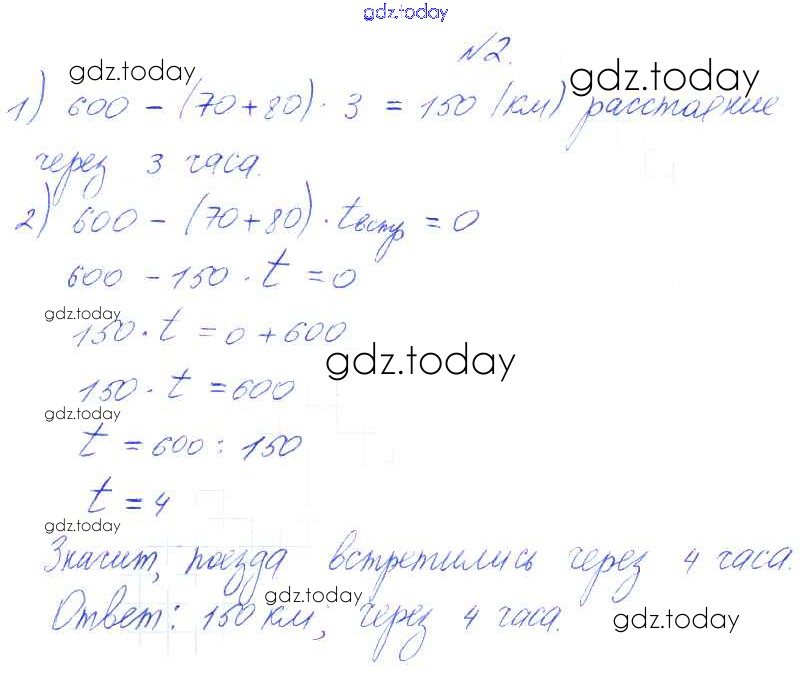 gdz.today
№2.
gdz.today gdz.today
1) 600 - (70+80) · 3 = 150 (км) расстояние
через 3 часа.
2) 600 - (70+80) · tвстр = 0
600 - 150 · t = 0
gdz.today
150 · t = 0 + 600
gdz.today
150 · t = 600
gdz.today
t = 600 : 150
t = 4
gdz.today
Значит, поезда встретились через 4 часа.
gdz.today
Ответ: 150 км; через 4 часа.
gdz.today